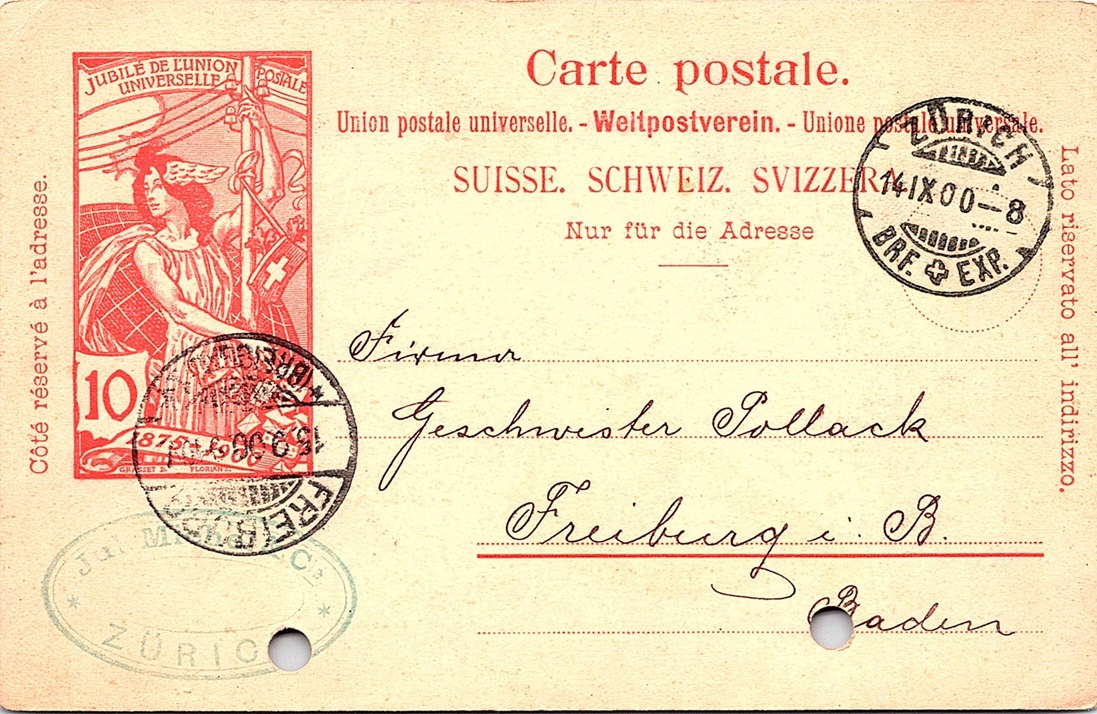 JUBILÉ DE L'UNION
UNIVERSELLE POSTALE
10
1875 1900
GRASSET D. FLORIAN S.
Côté réservé à l'adresse.
Carte postale.
Union postale universelle. - Weltpostverein. - Unione postale universale.
SUISSE. SCHWEIZ. SVIZZERA.
Nur für die Adresse
Lato riservato all' indirizzo.
ZÜRICH
14 IX 00-8
BRF. EXP.
Firma
Geschwister Pollack
Freiburg i. B.
Baden
FREIBURG
15.9.00
(BREISGAU)
Co
ZÜRICH